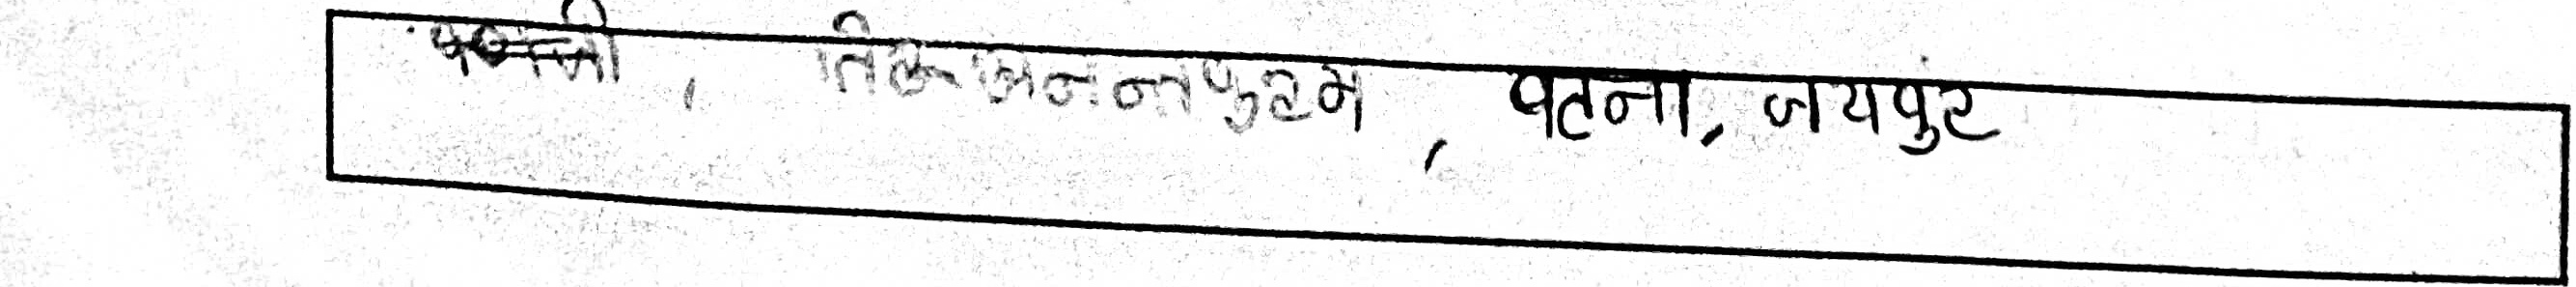 , तिरूअनन्तपुरम , पटना, जयपुर